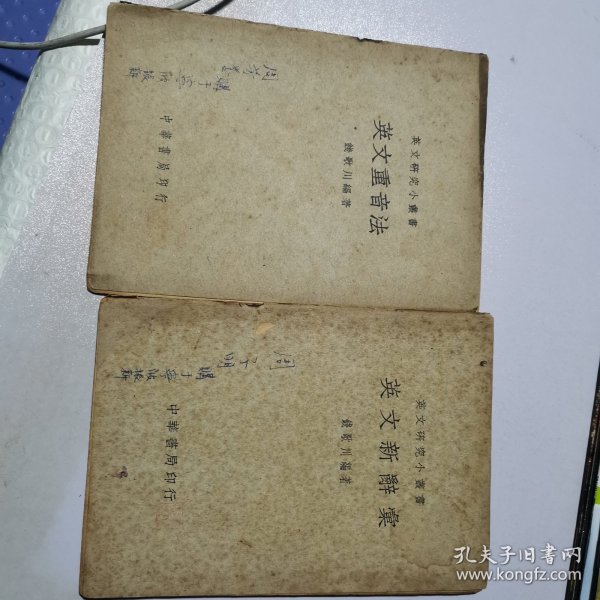 英文研究小叢書
英文重音法
錢歌川編著
中華書局印行
英文研究小叢書
英文新辭彙
錢歌川編著
中華書局印行
孔夫子旧书网
www.kongfz.com